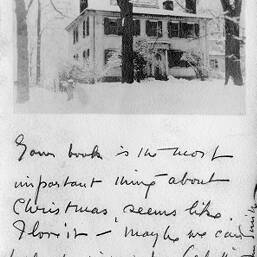 Your book is the most
important thing about
Christmas, seems like.
I love it — maybe we can